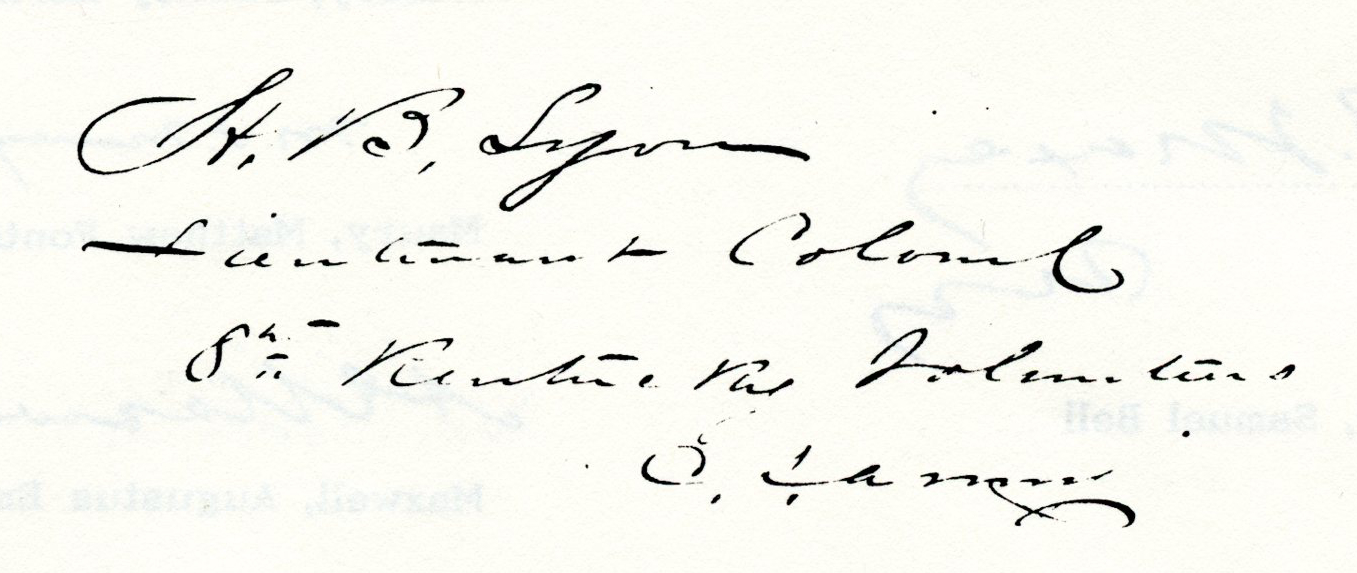 H. B. Lyon
Lieutenant Colonel
8th Kentucky Volunteers
C. S. Army